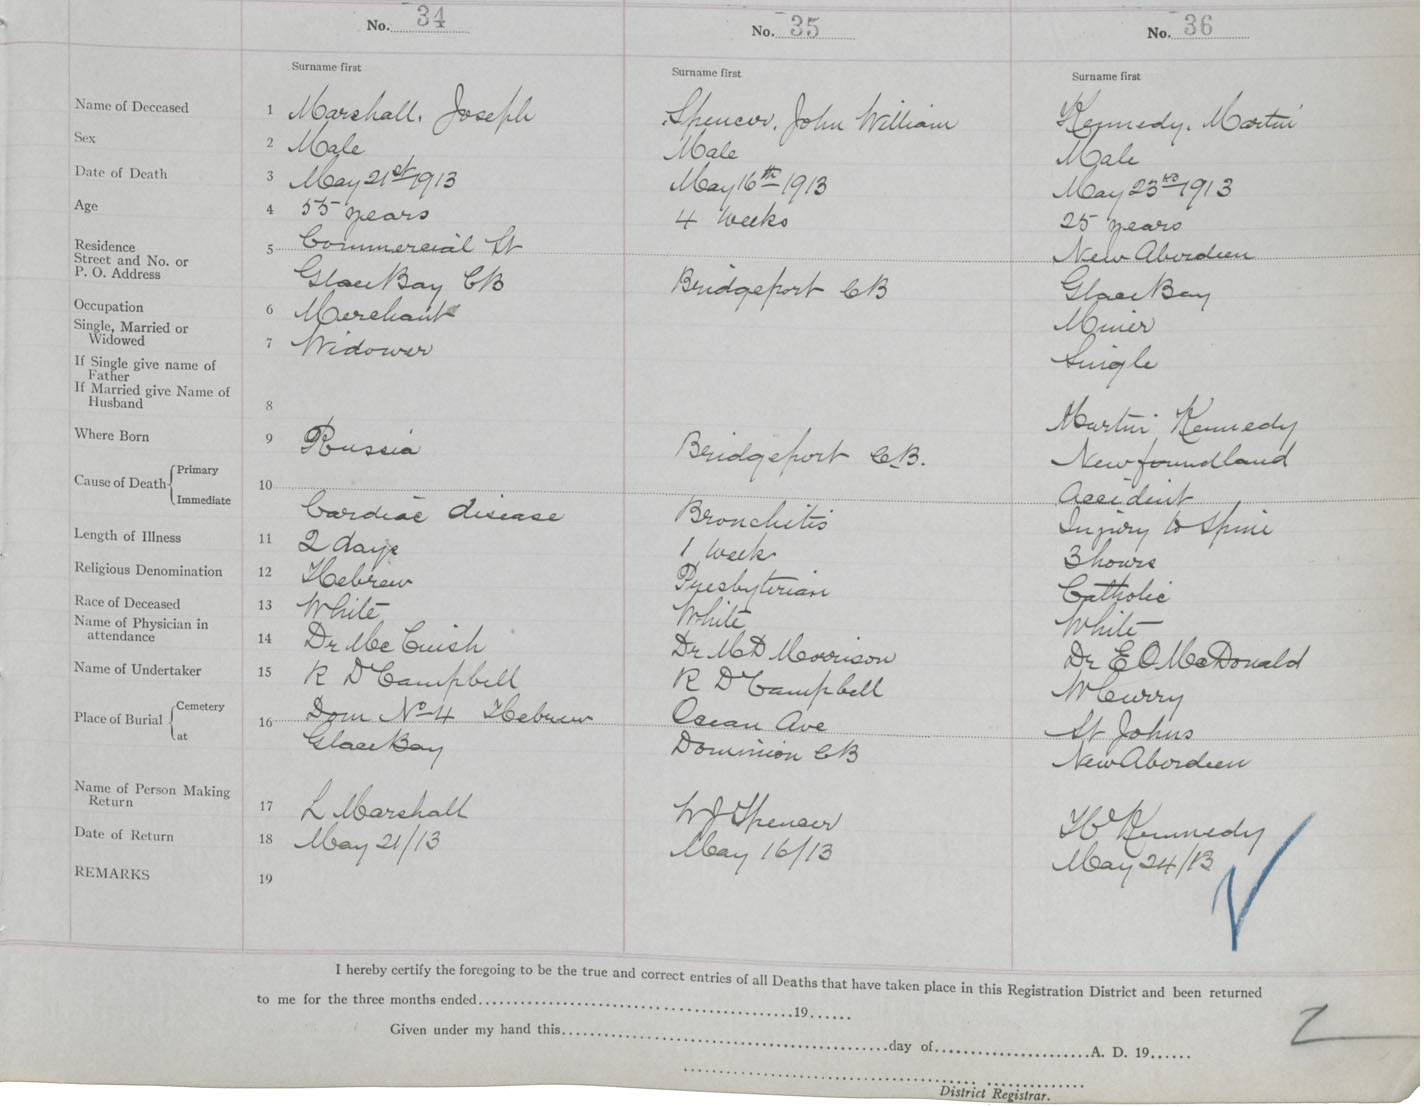 No. 34 No. 35 No. 36
Surname first Surname first Surname first
Name of Deceased 1 Marshall, Joseph Spencer, John William Kennedy, Martin
Sex 2 Male Male Male
Date of Death 3 May 21st 1913 May 16th 1913 May 23rd 1913
Age 4 55 years 4 weeks 25 years
Residence 5 Commercial St New Aberdeen
Street and No. or
P. O. Address Glace Bay CB Bridgeport CB Glace Bay
Occupation 6 Merchant Miner
Single, Married or
Widowed 7 Widower Single
If Single give name of
Father
If Married give Name of
Husband 8 Martin Kennedy
Where Born 9 Russia Bridgeport C.B. Newfoundland
Cause of Death Primary 10 Accident
Immediate Cardiac disease Bronchitis Injury to Spine
Length of Illness 11 2 days 1 week 3 hours
Religious Denomination 12 Hebrew Presbyterian Catholic
Race of Deceased 13 White White White
Name of Physician in
attendance 14 Dr Mc Cuish Dr M D Morrison Dr E O McDonald
Name of Undertaker 15 R D Campbell R D Campbell W Curry
Place of Burial Cemetery 16 Dom No 4 Hebrew Ocean Ave St Johns
at Glace Bay Dominion CB New Aberdeen
Name of Person Making
Return 17 L Marshall W J Spencer Kennedy
Date of Return 18 May 21/13 May 16/13 May 24/13
REMARKS 19
I hereby certify the foregoing to be the true and correct entries of all Deaths that have taken place in this Registration District and been returned
to me for the three months ended..........19......
Given under my hand this..........day of..........A. D. 19......
District Registrar.